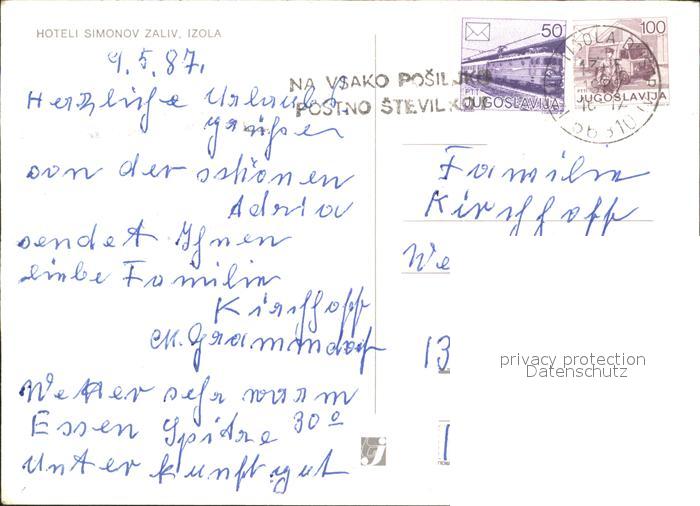 HOTELI SIMONOV ZALIV, IZOLA
9.5.87.
Herzliche Urlaubs
grüßen
von der schönen
Adria
sendet Ihnen
liebe Familie
Kirchhoff
M. Grammdorf
Wetter sehr warm
Essen Spitze 30º
Unterkunft gut
NA VSAKO POŠILJKO
POŠTNO ŠTEVILKO
50
PTT
JUGOSLAVIJA
100
JUGOSLAVIJA
IZOLA
66310
Familie
Kirchhoff
We
13
privacy protection
Datenschutz